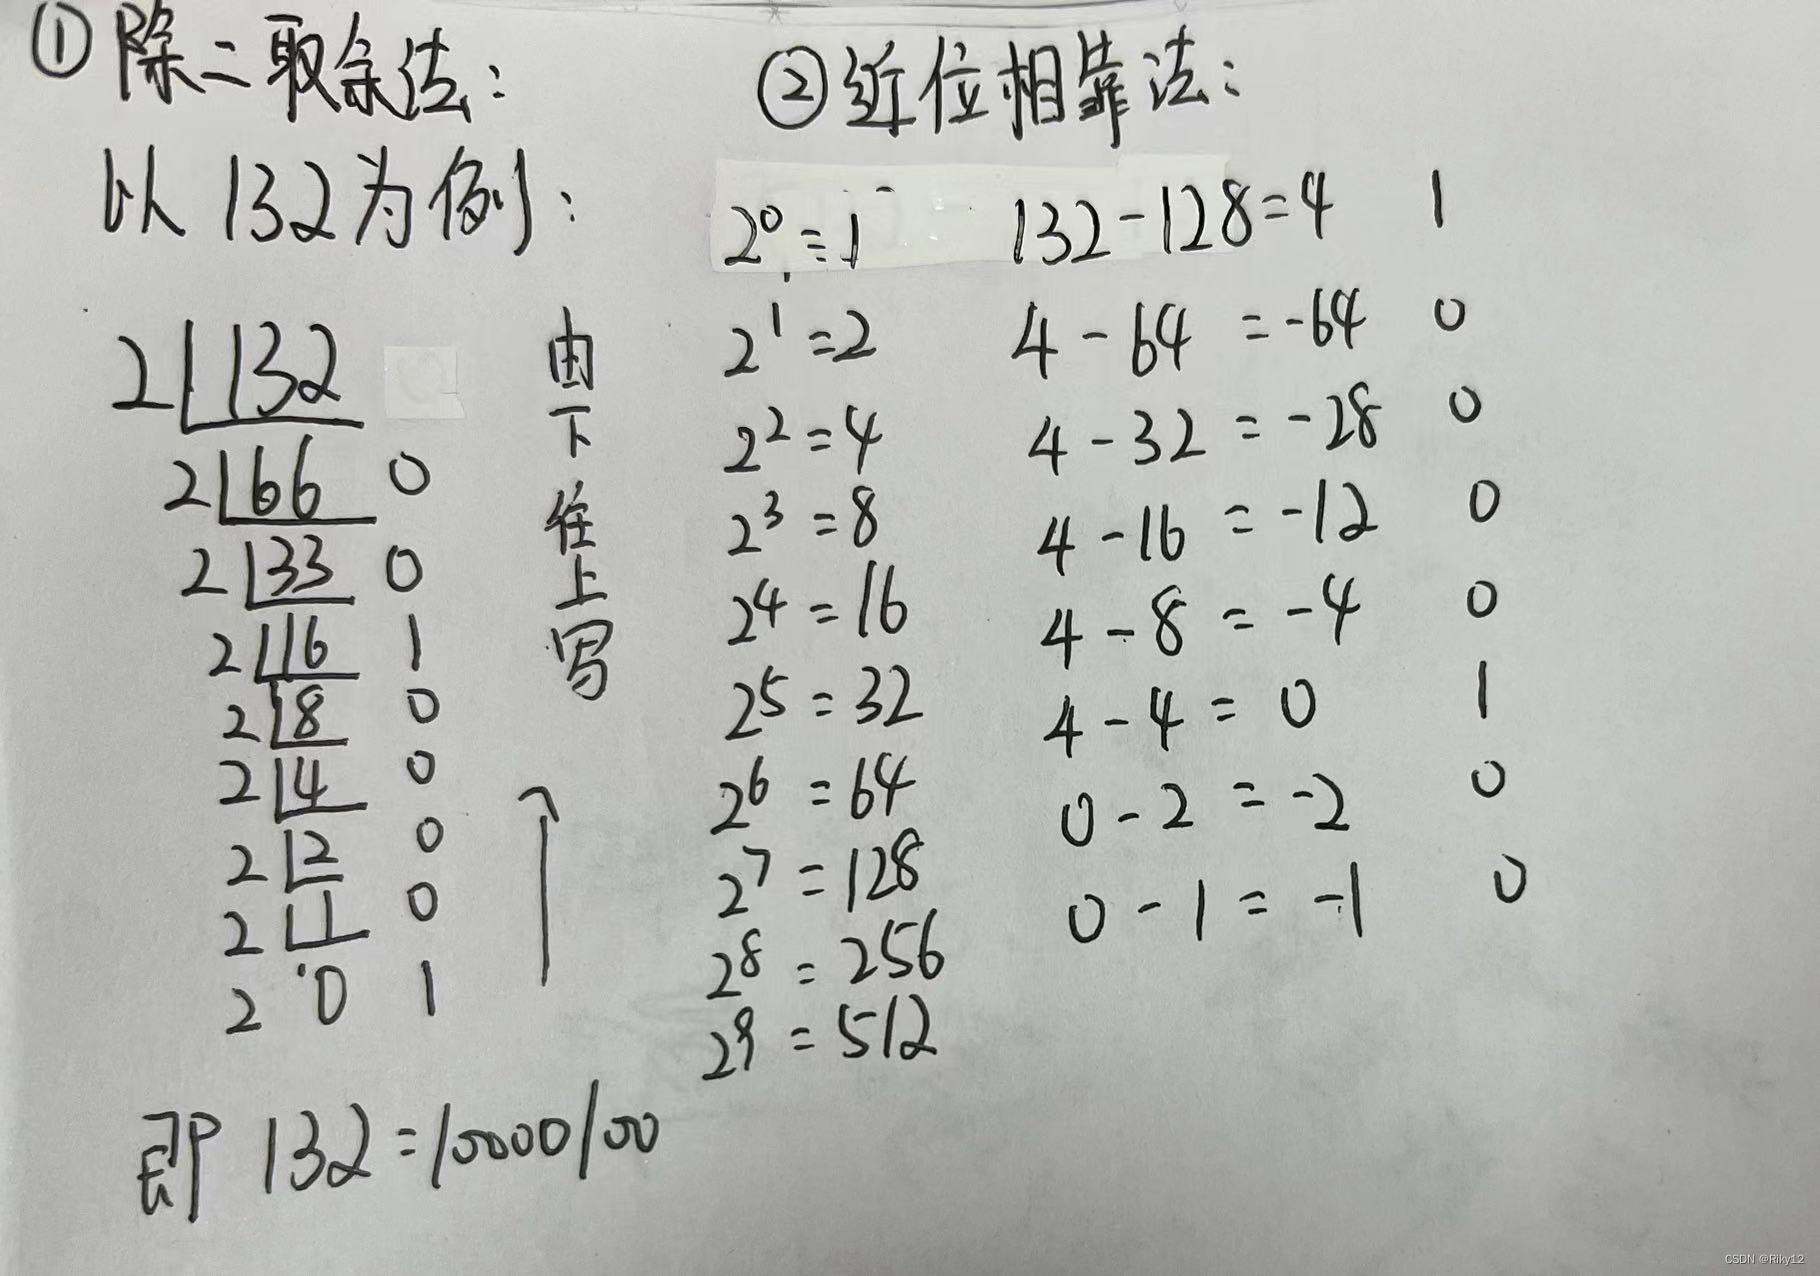 ①除二取余法:
以132为例:
2 132
2 66 0
2 33 0
2 16 1
2 8 0
2 4 0
2 2 0
2 1 0
2 0 1
由下往上写
即 132=10000100
②近位相靠法:
2⁰=1
2¹=2
2²=4
2³=8
2⁴=16
2⁵=32
2⁶=64
2⁷=128
2⁸=256
2⁹=512
132-128=4 1
4-64=-64 0
4-32=-28 0
4-16=-12 0
4-8=-4 0
4-4=0 1
0-2=-2 0
0-1=-1 0
CSDN @Riky12